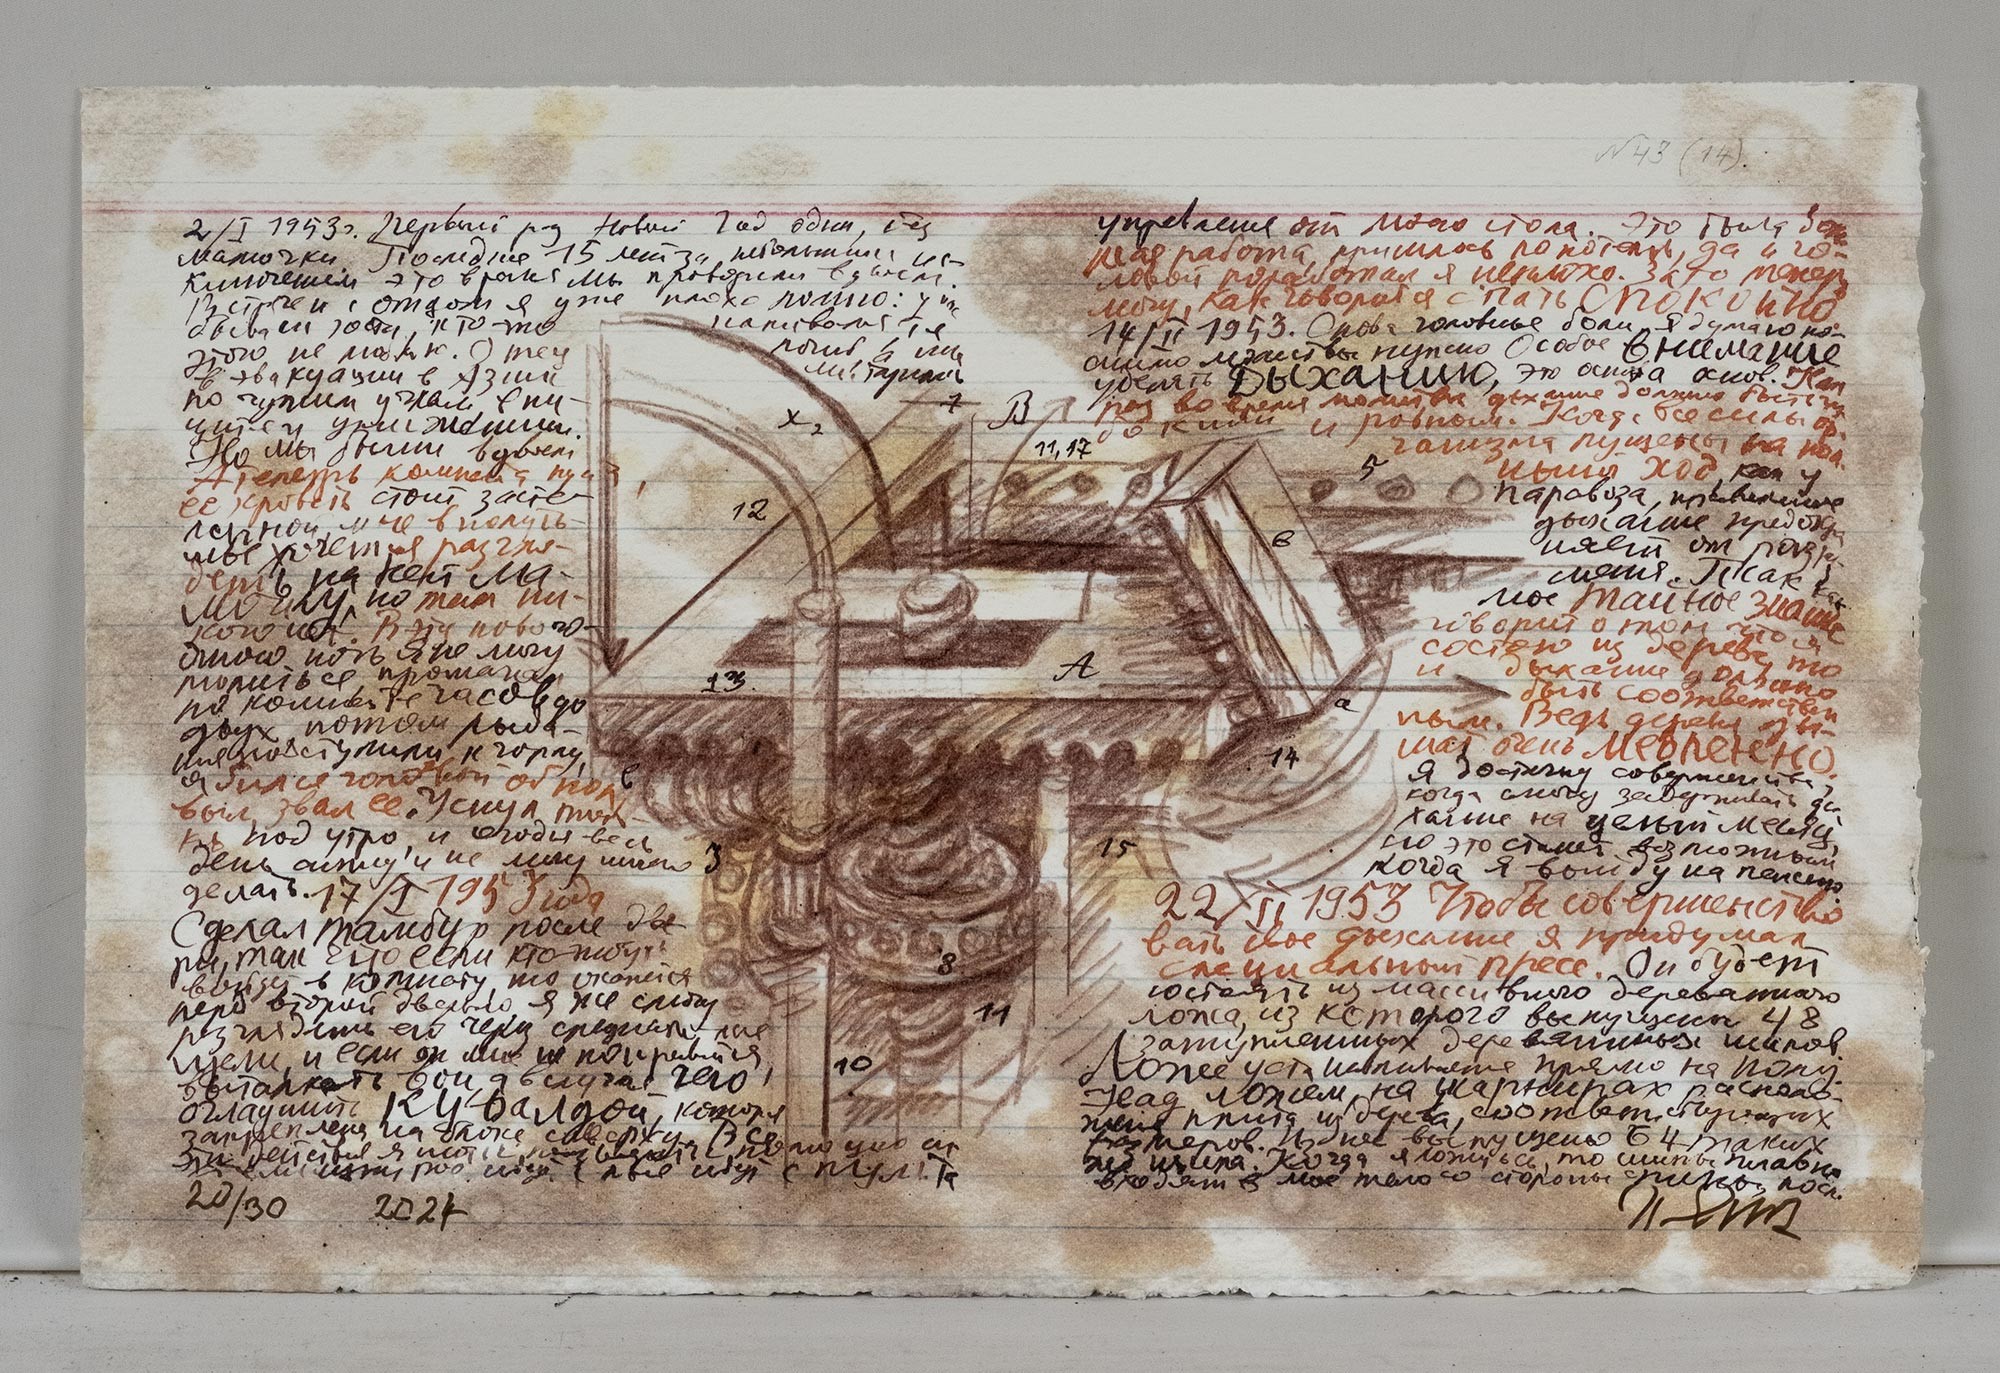 N43 (14).
2/I 1953г. Первый раз Новый Год один, без
мамочки. Последние 15 лет за небольшим ис-
ключением это время мы проводили вдвоем.
Встречи с отцом я уже плохо помню: у нас
бывали гости, кто-то напивался
этого не мог. Отец
в эвакуации в Азии
Но мы были вдвоем
А теперь комната пуста,
ее кровать стоит засте-
ленной, мне в полуть-
ме хочется разгля-
деть на ней ма-
мочку, но там ни-
кого нет. В эту нового-
днюю ночь я не могу
молиться прошагал
по комнате часов до
двух, потом рыда-
ния подступили к горлу,
я бился головой об пол,
выл, звал ее. Уснул толь-
ко под утро, и сегодня весь
день лежу и не могу ничего
делать. 17/I 1953 года
Сделал тамбур после две-
ри, так что если кто-нибудь
войдет в комнату, то окажется
перед второй дверью, я же смогу
разглядеть его через специальные
щели, и если он мне не понравится,
вытолкать вон, в случае чего
оглушить кувалдой, которая
закреплена на блоке сверху. Все
эти действия я могу производить с помощью
идут с пульта
управления от моего стола. Это была боль-
шая работа, пришлось попотеть, да и го-
ловой поработал я неплохо. Зато теперь
могу, как говорится спать спокойно
14/II 1953. Снова головные боли. Я думаю по-
мимо молитвы нужно особое внимание
уделять дыханию, это основа основ. Как
раз во время молитвы дыхание должно быть глу-
боким и ровным. Когда все силы ор-
ганизма пущены на пол-
ный ход, как у
паровоза, правильное
дыхание предохра-
няет от
мое тайное знание
говорит о том что я
состою из дерева, то
и дыхание должно
быть соответствен
ным. Ведь деревья ды-
шат очень медленно.
Я достигну совершенства,
когда смогу задерживать ды-
хание на целый месяц,
но это станет возможным
когда я выйду на пенсию
22/II 1953 Чтобы совершенство
вать свое дыхание я придумал
специальный пресс. Он будет
состоять из массивного деревянного
ложа, из которого выпущены 48
затупленных деревянных шипов
Ложе устанавливается прямо на полу.
Над ложем, на шарнирах располо-
жена плита из дерева, соответствующих
размеров. Из нее выпущено 64 таких
же шипа. Когда я ложусь, то шипы плавно
входят в мое тело со стороны спины, после
X2
7
B
11,17
5
12
в
A
13.
a
14
6
3
15
8
11
10
20/30 2024